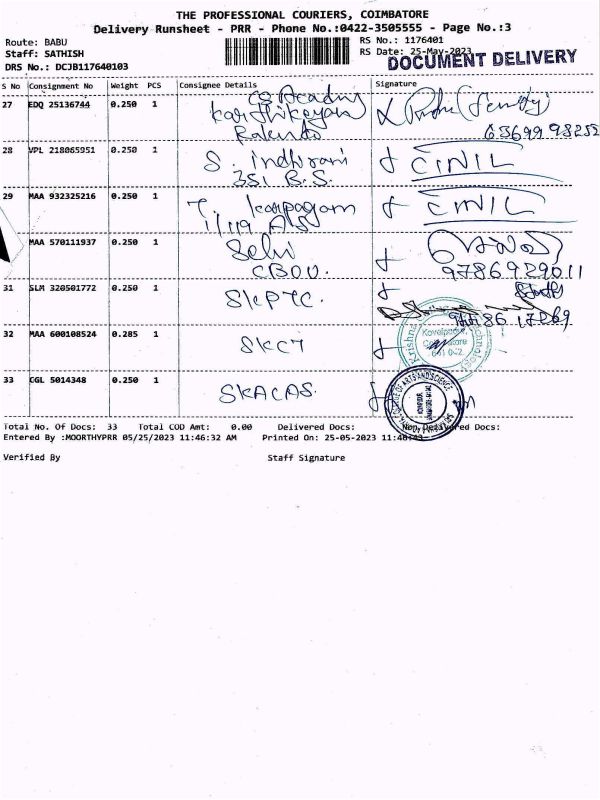 THE PROFESSIONAL COURIERS, COIMBATORE
Delivery Runsheet - PRR - Phone No.:0422-3505555 - Page No.:3
Route: BABU
RS No.: 1176401
Staff: SATHISH
RS Date: 25-May-2023
DOCUMENT DELIVERY
DRS No.: DCJB117640103
S No Consignment No Weight PCS Consignee Details Signature
27 EDQ 25136744 0.250 1
Karthikeyan
28 VPL 218065951 0.250 1 S. Indhirani
351 B.S.
29 MAA 932325216 0.250 1 T. Karpagam
MAA 570111937 0.250 1 Selvi
9786929011
31 SLM 320501772 0.250 1 SKPTC.
32 MAA 600108524 0.285 1 SKCT
Krishna
Kovaipudur
Coimbatore
641 042
Technology
33 CGL 5014348 0.250 1 SKACAS.
OF ARTS AND SCIENCE
Total No. Of Docs: 33 Total COD Amt: 0.00 Delivered Docs: Non Delivered Docs:
Entered By :MOORTHYPRR 05/25/2023 11:46:32 AM Printed On: 25-05-2023
Verified By Staff Signature